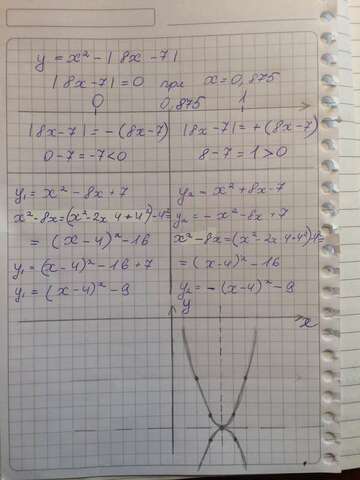 y = x² - |8x - 7|
|8x - 7| = 0 при x = 0,875
0 0,875 1
|8x-7| = -(8x-7) |8x-7| = +(8x-7)
0-7 = -7 < 0 8-7 = 1 > 0
y₁ = x² - 8x + 7 y₂ - x² + 8x - 7
x² - 8x = (x² - 2x 4 + 4²) - 4² = y₂ = - x² - 8x + 7
= (x-4)² - 16 x² - 8x = (x² - 2x 4 + 4²) - 4² =
y₁ = (x-4)² - 16 + 7 = (x-4)² - 16
y₁ = (x-4)² - 9 y₂ = -(x-4)² - 9
y
x